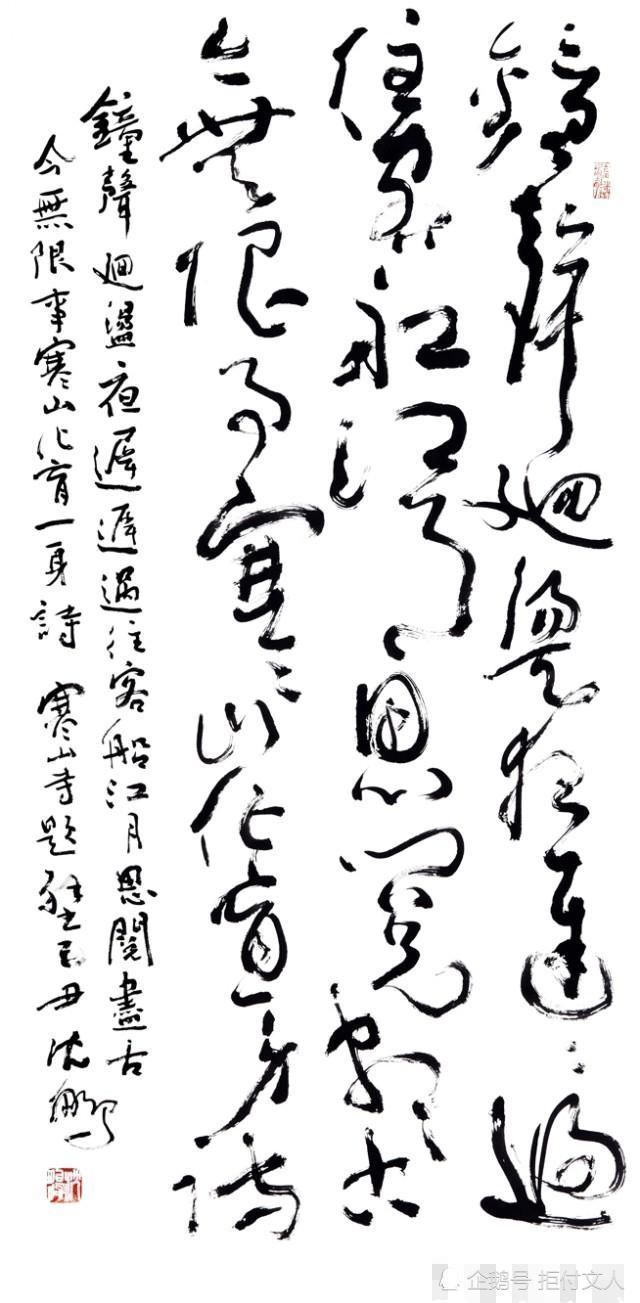 鐘聲迴盪夜遲遲過
往客船江月思閱盡古
今無限事寒山化育一身詩
鐘聲迴盪夜遲遲過往客船江月思閱盡古
今無限事寒山化育一身詩 寒山寺題壁 己丑沈鵬
企鹅号 拒付文人